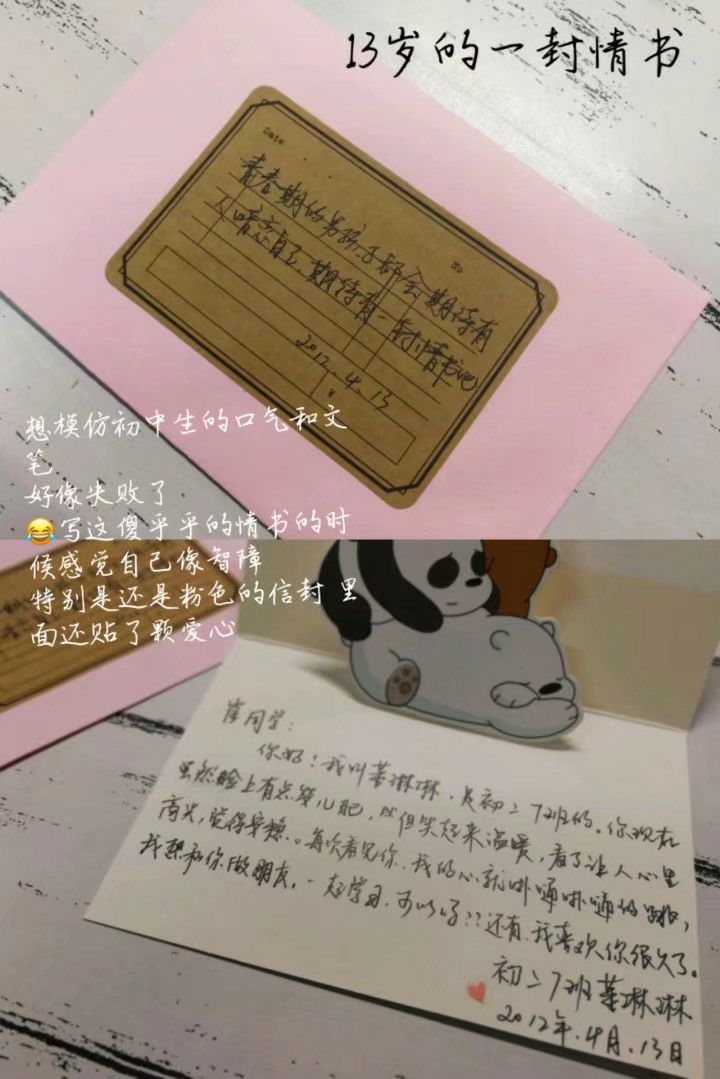 13岁的一封情书
Date
No
青春期的男孩子都会期待有
人暗恋自己,期待有一封情书吧
2012.4.13
想模仿初中生的口气和文
笔
好像失败了
😂写这傻乎乎的情书的时
候感觉自己像智障
特别是还是粉色的信封 里
面还贴了颗爱心
崔同学:
你好!我叫董琳琳,是初二7班的。你现在
虽然脸上有点婴儿肥,但笑起来温暖,看了让人心里
高兴,觉得安稳。每次看见你,我的心就卟嗵卟嗵的跳,
我想和你做朋友,一起学习,可以吗??还有,我喜欢你很久了。
初二7班董琳琳
2012年.4月.13日